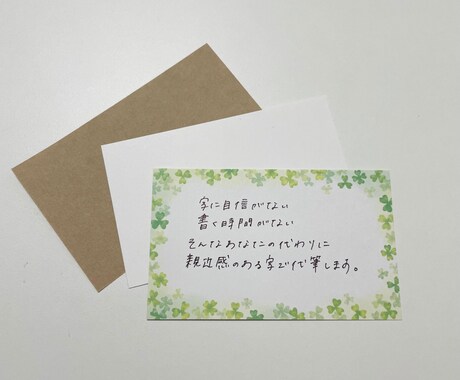 字に自信がない
書く時間がない
そんなあなたの代わりに
親近感のある字で代筆します。